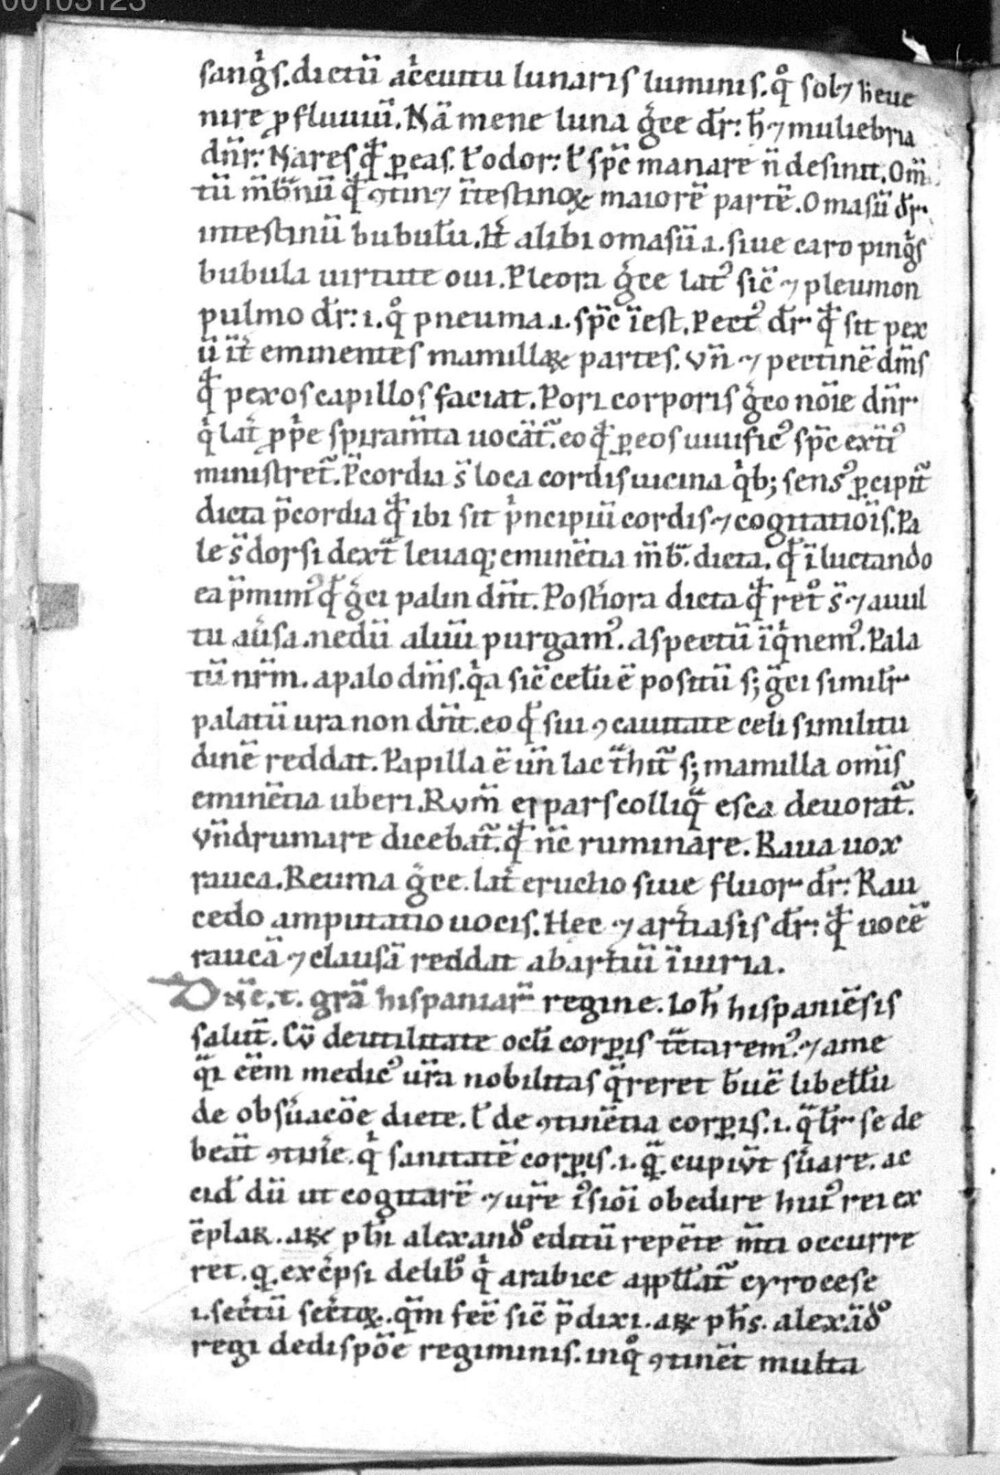 00103123
sangͥs. dictū ac̄euntu lunaris luminis. qͦ sol⁊ h̄ eue
nire ꝓfluuiū. Nā mene luna gͤce dr̄: h̄ ⁊ muliebria
dn̄r: Nares qͩ ꝑ eas. ł odor: ł sp̄c manare n̄ desinit. Om̄
tū m̄b̄nū qͩ ꝯtin⁊ ītestinoꝝ maiorē partē. Omasū dr̄
intestinū bubułu. It̄ alibi omasū .i. siue caro pingͥs
bubula uirtute oui. Pleora gͤce lat᷒ sic̄ ⁊ pleumon
pulmo dr̄: .i. qͦ pneuma .i. sp̄c īest. Pect᷒ dr̄ qͩ sit pex
ū it̄ eminentes mamillaꝝ partes. Vn̄ ⁊ pectinē dm̄s
qͩ pexos capillos faciat. Pori corporis gͤco noīe dn̄r
qͥ lat̄ ꝓpͥe spiram̄ta uocāt᷑. eo qͩ ꝑ eos uiuific᷒ sp̄c ext̄i᷒
ministret᷑. P̄cordia s̄ loca cordis uicina qͥb; sens᷒ ꝑcipit᷑
dicta p̄cordia qͩ ibi sit pͥncipiū cordis ⁊ cogitatiōis. Pa
le s̄ dorsi dext̄ leuaq; eminētia m̄b̄. dicta. qͩ ī luctando
ea p̄mim᷒ qͩ gͤci palin dn̄t. Post̄iora dicta qͩ ret͛ s̄ ⁊ a uul
tu aūsa. ne dū aluū purgam᷒. aspectū īqͥnem᷒. Pala
tū nr̄m. a palo dm̄s. qͥa sic̄ celū ē positū s; gͤci simil̄r
palatū ura non dn̄t. eo qͩ sui ꝯcauitate celi similitu
dinē reddat. Papilla ē un̄ lac t̄hit᷑ s; mamilla om̄is
eminētia uberi. Rum̄ ē pars colli qͣ esca deuorat᷑.
Vn̄ drumare dicebāt᷑. qͩ nc̄ ruminare. Raua uox
rauca. Reuma gͤce. lat̄ eructio siue fluor dr̄: Rau
cedo amputatio uocis. Hec ⁊ art̄iasis dr̄: qͩ uocē
raucā ⁊ clausā reddat ab art̄iū īiuria.
Dn̄e. t. grā hispaniar̄ regine. Ioh̄ hispaniēsis
salut̄. Cū de utilitate ocł corꝑis t̄ctarem᷒. ⁊ a me
qͣi cēm medic᷒ ur̄a nobilitas qͣreret b̄uē libełlu
de obsuacōe diete. ł de ꝯtinētia corꝑis .i. qͣlr̄ se de
beāt ꝯtin̄e. qͥ sanitatē corꝑis .i. qͣ cupiūt s̄uare. ac
cid̄ dū ut cogitarē ⁊ ur̄e i᷒sioī obedire hui᷒ rei ex
ēplar. aƀ ph̄i alexandͦ editū repēte m̄ti occurre
ret. q exc̄psi de libͦ qͥ arabice appłlat᷑ cyrocese
.i. sec̄tū sec̄toꝝ. qm̄ fec̄ sic̄ p̄dixi. aƀ ph̄s. alexādͦ
regi de dispōe regiminis. in qͦ ꝯtinēt multa